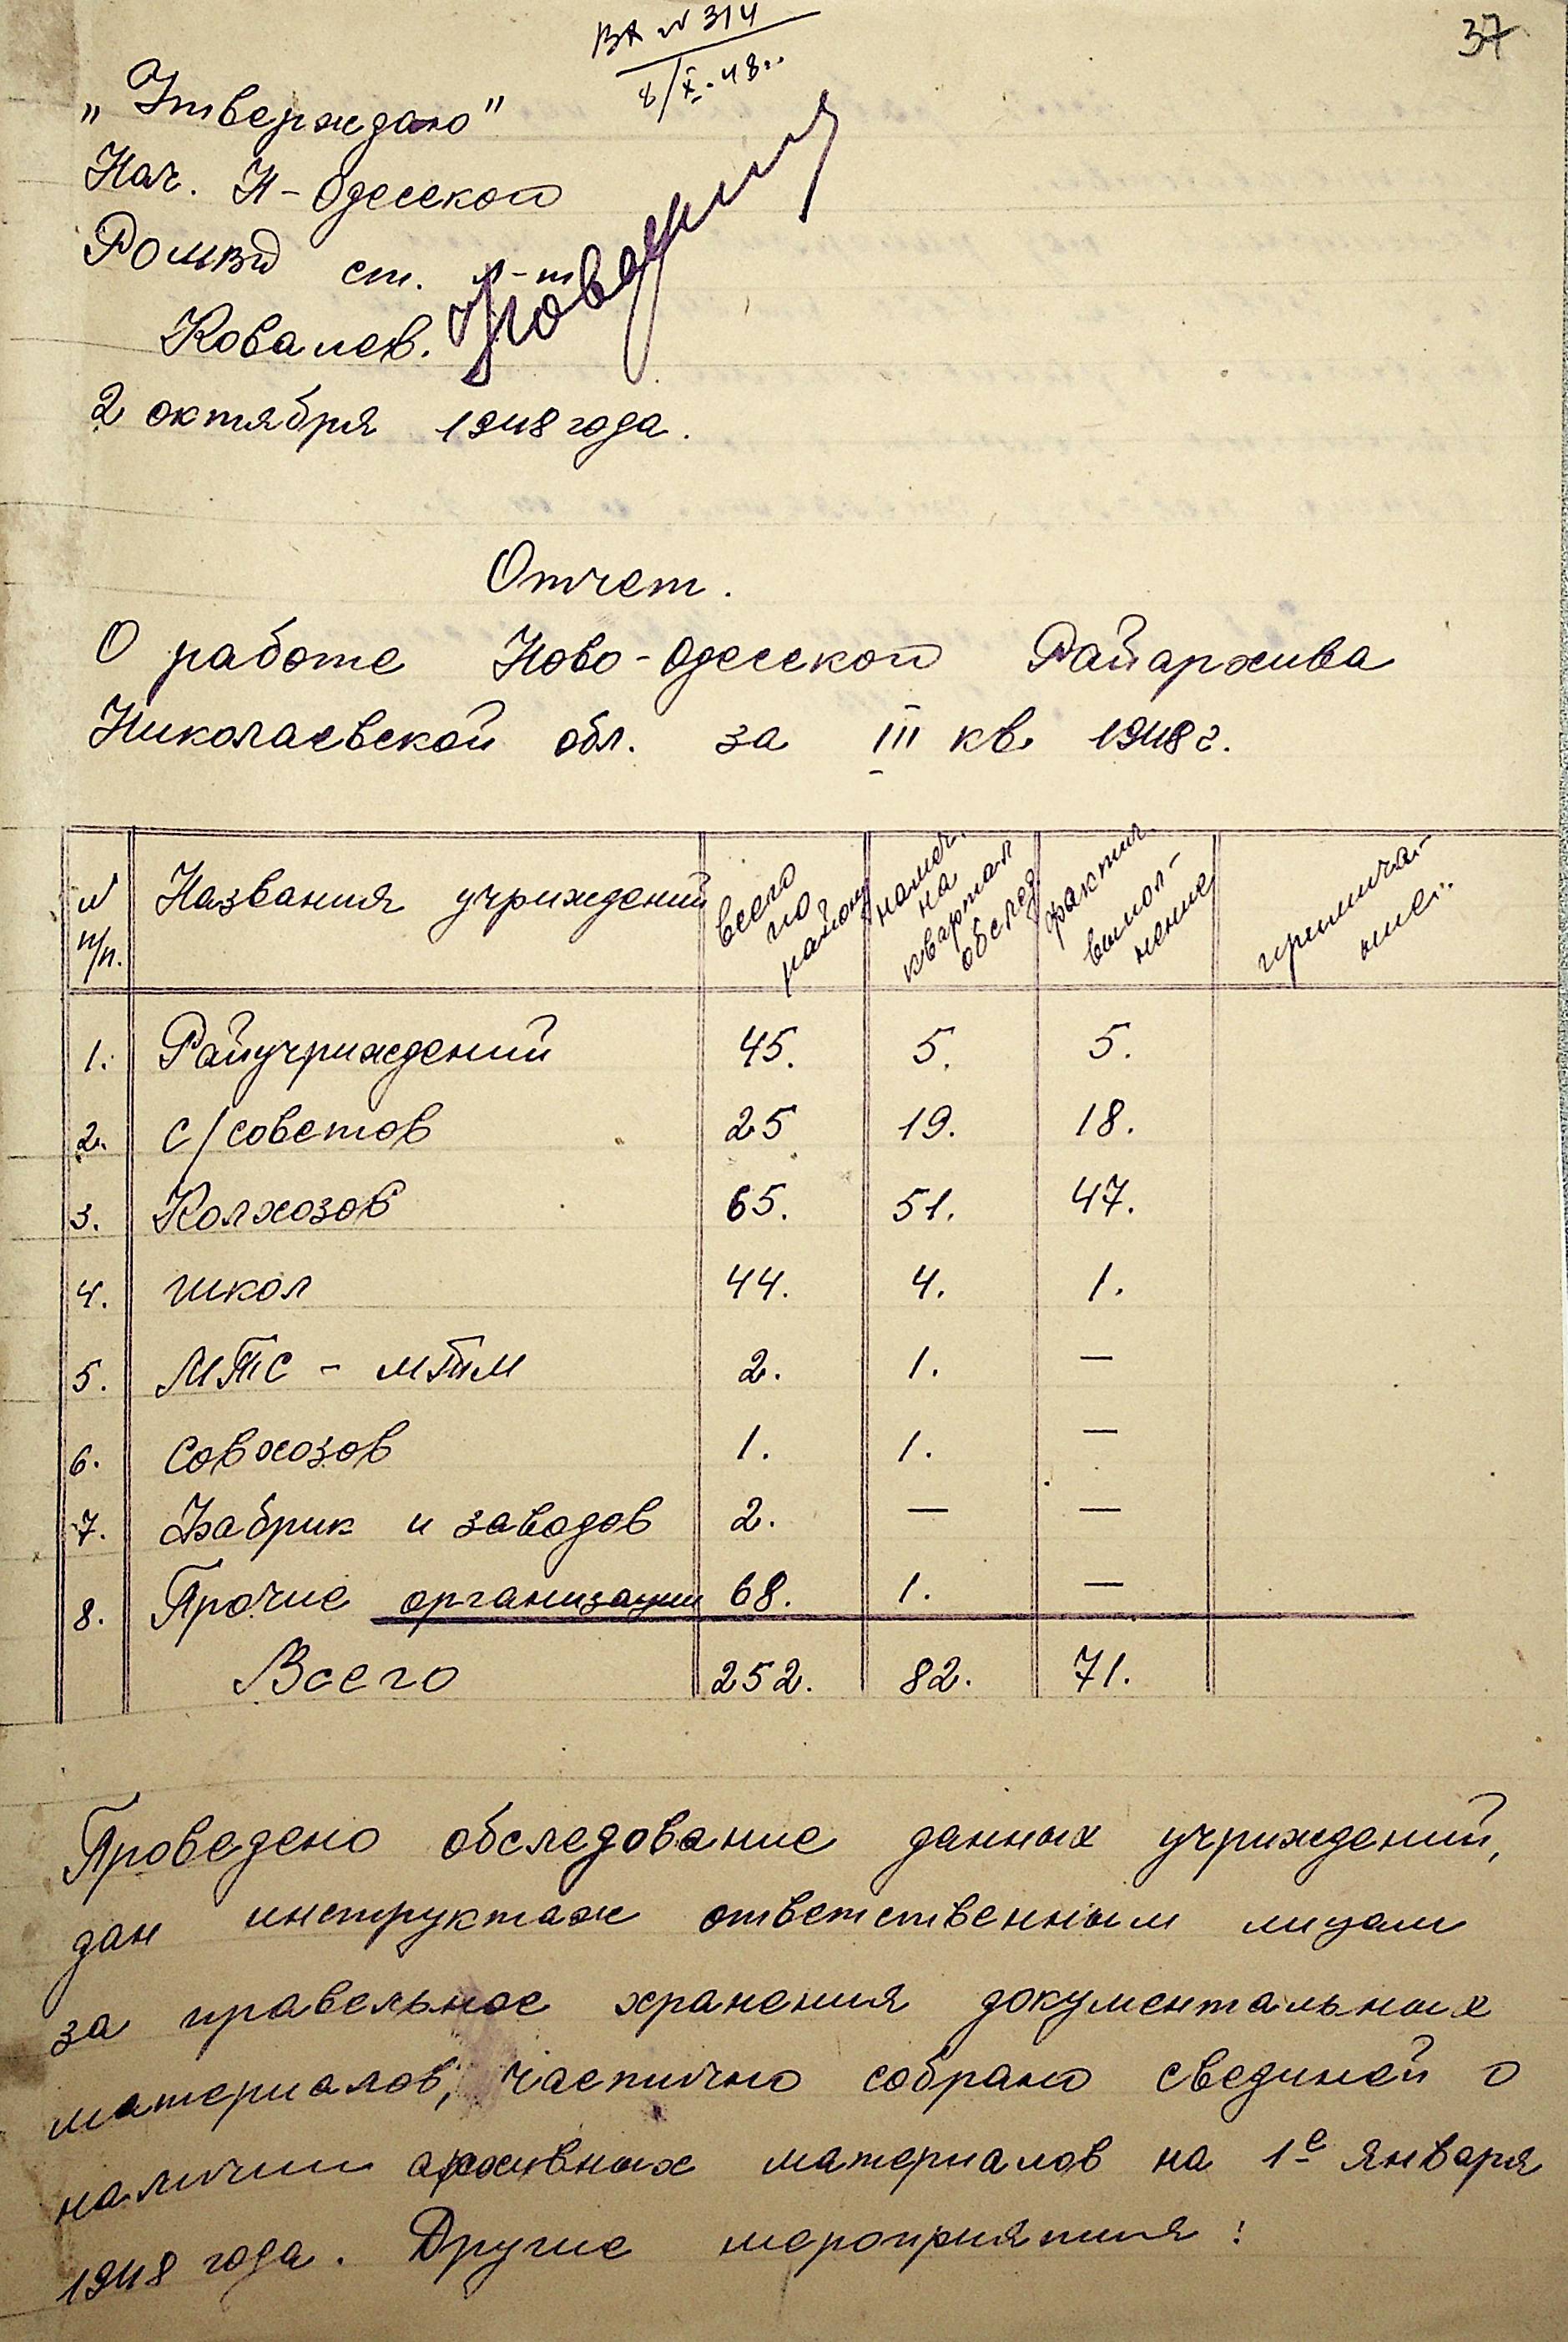 37
ВХ N 314
8/X-48г.
„Утверждаю"
Нач. Н-Одесской
РОМВД ст. л-т
Ковалев.
2 октября 1948 года.
Отчет.
О работе Ново-Одесской Райархива
Николаевской обл. за III кв. 1948 г.
N п/п. Названия учриждений всего по району намеч. на квартал обслед фактич. выпол-нение примеча-ние.
1. Райучриждений 45. 5. 5.
2. с/советов 25 19. 18.
3. Колхозов 65. 51. 47.
4. школ 44. 4. 1.
5. МТС - 2. 1. —
6. Совхозов 1. 1. —
7. Фабрик и заводов 2. — —
8. Прочие организации 68. 1. —
Всего 252. 82. 71.
Проведено обследование данных учриждений,
дан инструктаж ответственным лицам
за правельное хранения документальных
материалов, частично собрано свединей о
наличии архивных материалов на 1е января
1948 года. Другие мероприятия: